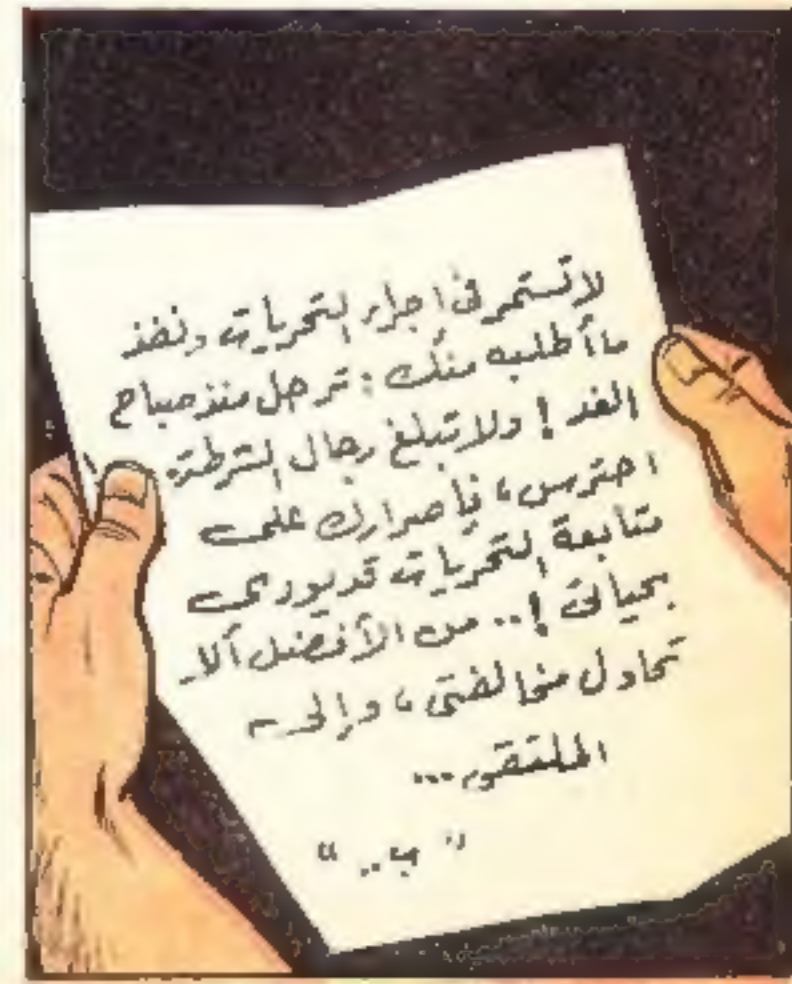 لا تستمر فى اجراء التحريات ونفذ
ما أطلبه منك : ترحل منذ صباح
الغد ! ولا تبلغ رجال الشرطة.
احترس ، فإصرارك على
متابعة التحريات قد يودى
بحياتى !.. من الأفضل ألا
تحاول مخالفتى ، وإلى
الملتقى ...
" ب .. "